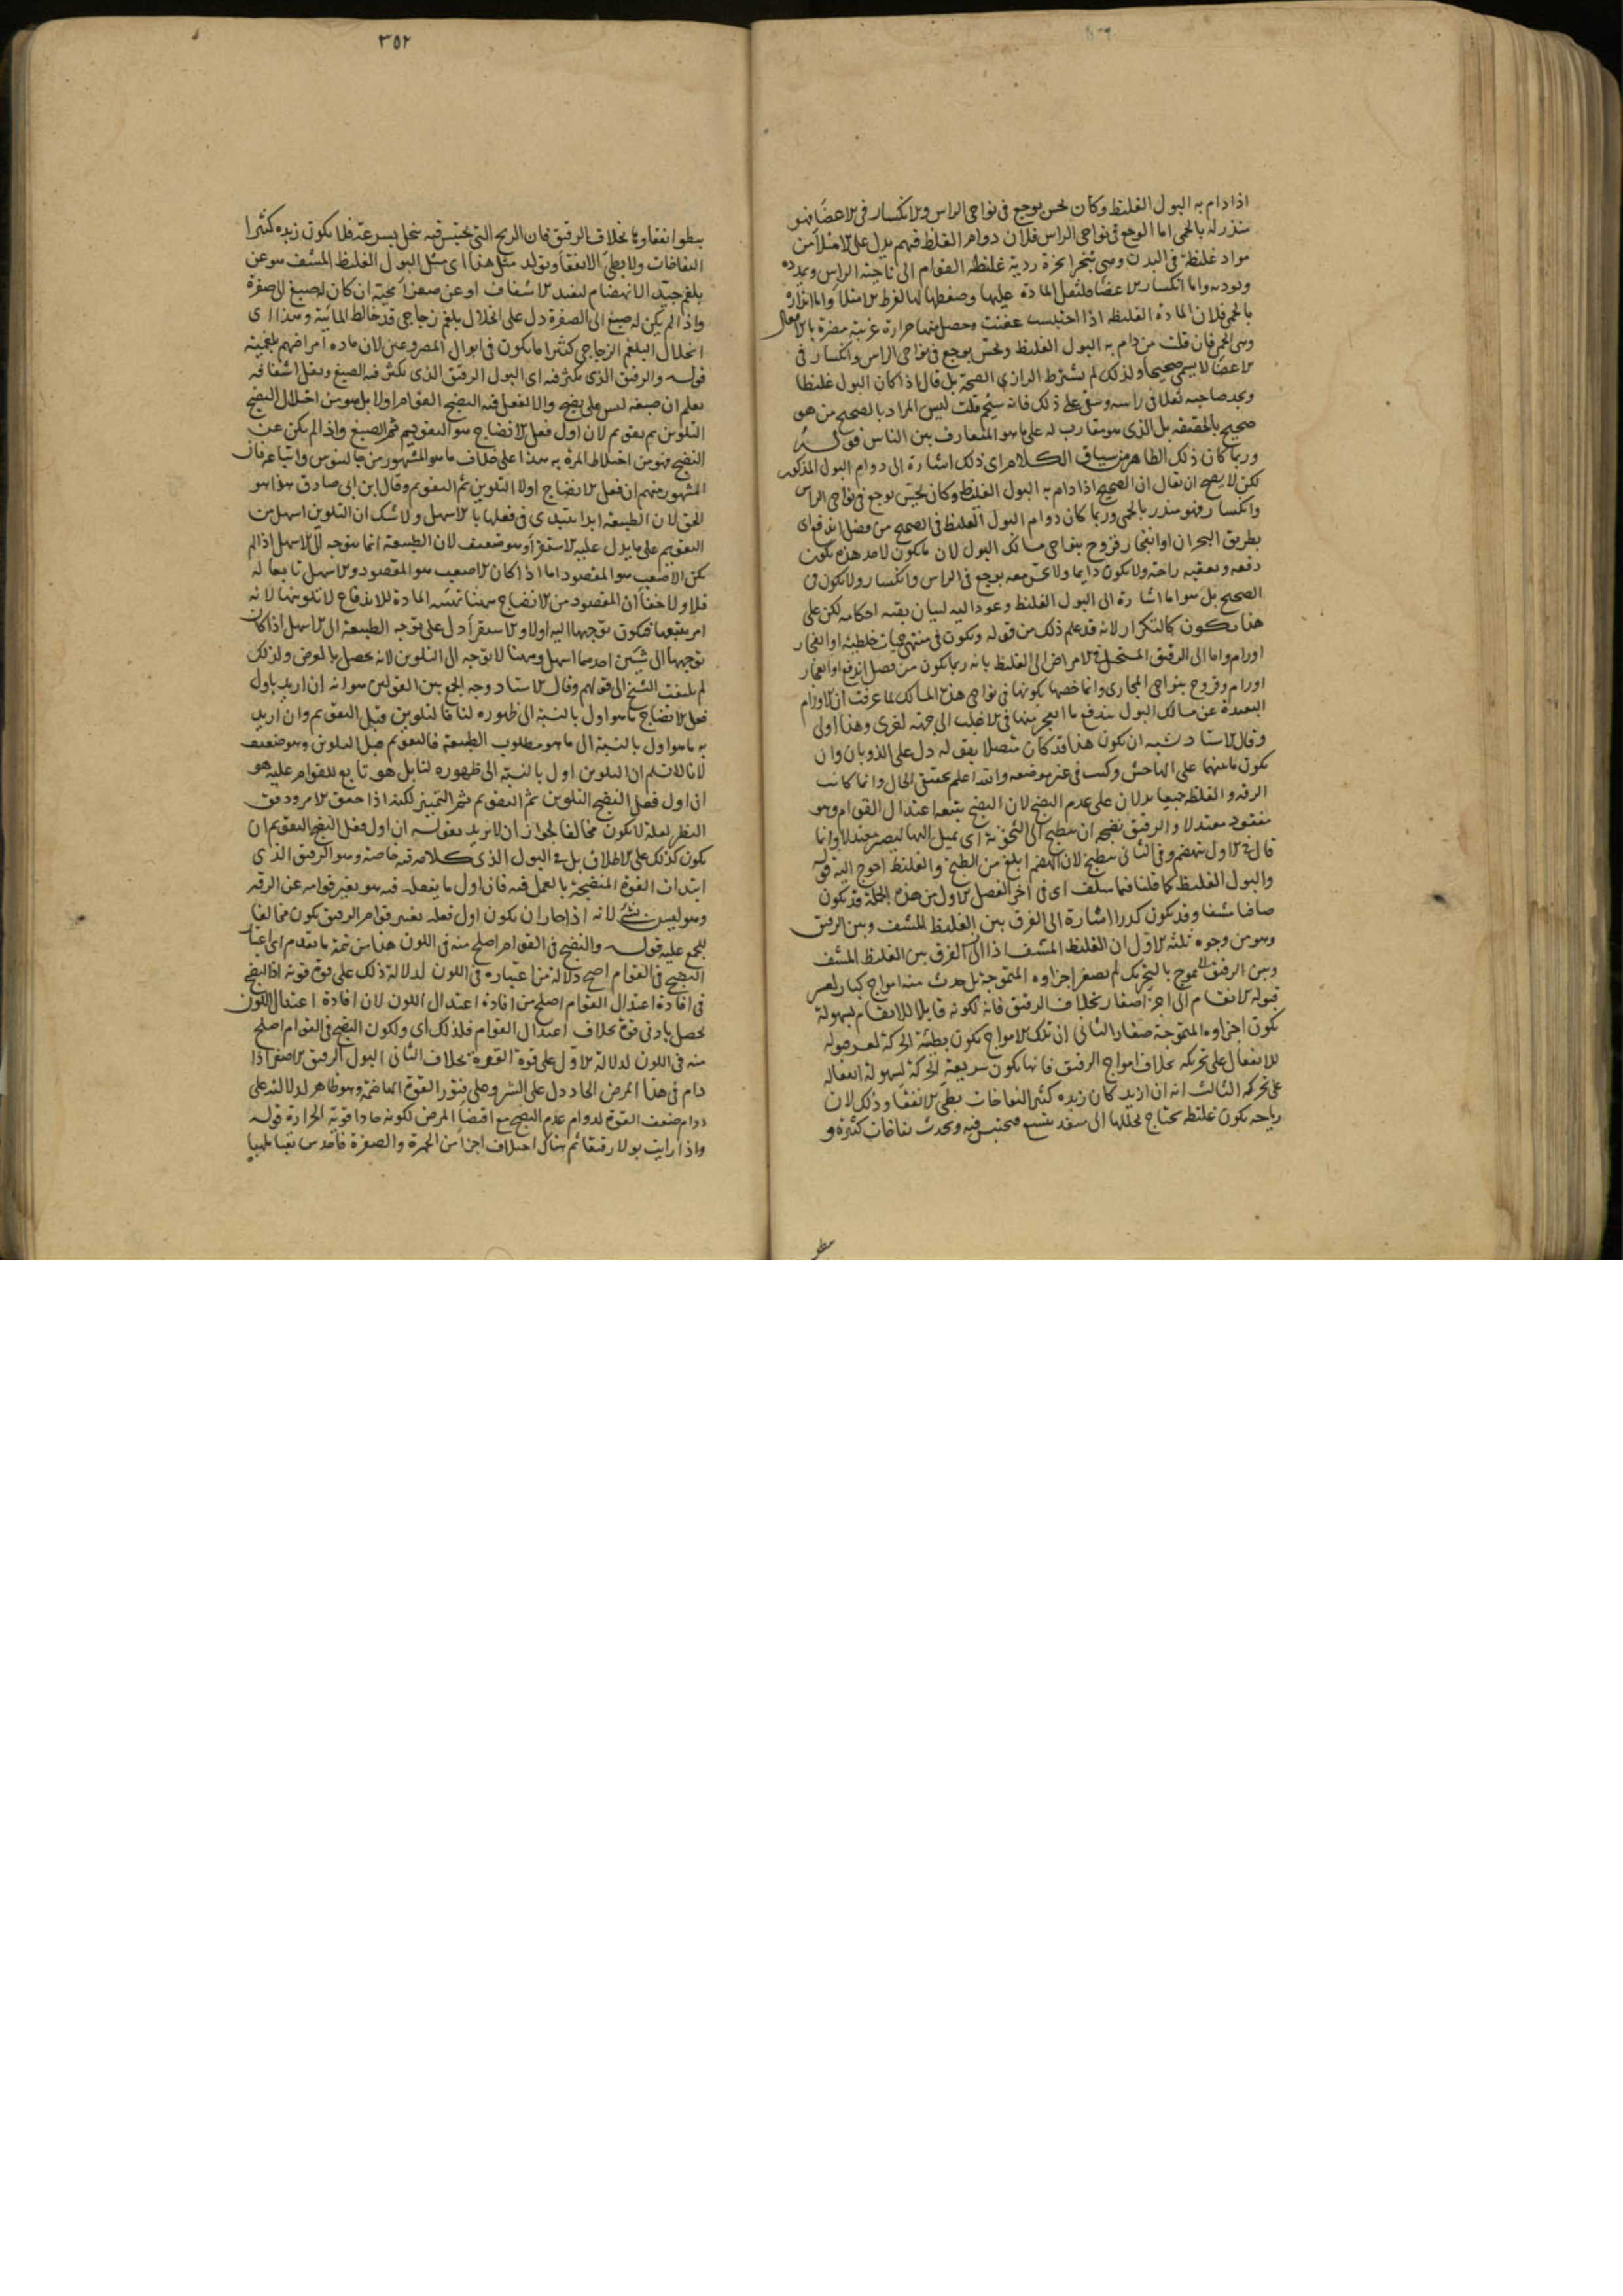 اذا دام به البول الغليظ وكان يحس بوجع في نواحي الراس والانكسار في الاعضا فهو
منذر له بالحمى اما الوجع في نواحي الراس فلان دوام الغلظ فيهم يدل على الامتلا من
مواد غليظة في البدن وهي تبخر ابخرة ردية غليظة القوام الى ناحية الراس ويمدده
وتوديه واما انكسار الاعضا فلثقل المادة عليها وضغطها لها لفرط الامتلا واما انذاره
بالحمى فلان المادة الغليظة اذا احتبست عفنت وحصل منها حرارة غريبة مضرة بالافعال
وهي الحمى فان قلت من دام به البول الغليظ ويحس بوجع في نواحي الراس وانكسار في
الاعضا لا يسمى صحيحا ولذلك لم يشترط الرازي الصحة بل قال اذا كان البول غليظا
ويجد صاحبه ثقلا في راسه وبقي على ذلك فانه سيحم قلت ليس المراد بالصحيح من هو
صحيح بالحقيقة بل الذي هو مقارب له على ما هو المتعارف بين الناس قوله
وربما كان ذلك الظاهر من سياق الكلام اي ذلك اشارة الى دوام البول المذكور
لكن لا يصح ان يقال ان الصحيح اذا دام به البول الغليظ وكان يحس بوجع في نواحي الراس
وانكسار فهو منذر بالحمى وربما كان دوام البول الغليظ في الصحيح من فضل اندفع اي
بطريق البحران او انفجار قروح بنواحي مسالك البول لان ما يكون لاحد هذه يكون
دفعه ويعقبه راحة ولا يكون دايما ولا يحس معه بوجع في الراس وانكسار ولا يكون في
الصحيح بل هو اما اشارة الى البول الغليظ وعودا اليه لبيان بقية احكامه لكن على
هذا يكون كالتكرار لانه قد علم ذلك من قوله ويكون في منتهى حميات خلطية او انفجار
اورام واما الى الرقيق المستحيل في الامراض الى الغليظ بانه ربما يكون من فضل اندفع او انفجار
اورام وقروح بنواحي المجاري وانما خصها بكونها في نواحي هذه المسالك لما عرفت ان الاورام
البعيدة عن مسالك البول يندفع ما ينفجر منها في الاغلب الى جهة اخرى وهذا اولى
وقال الاستاد يشبه ان يكون هذا قد كان متصلا بقوله دل على الذوبان وان
يكون ما بينهما على الهامش وكتب في غير موضعه والله اعلم بحقيق الحال وانما كانت
الرقة والغلظ جميعا يدلان على عدم النضج لان النضج يتبعه اعتدال القوام وهو
مفقود معتدلا والرقيق نضجه ان ينطبخ الى الثخونة اي يميل اليها ليصير معتدلا وانما
قال في الاول ينهضم وفي الثاني ينطبخ لان الهضم ابلغ من الطبخ والغليظ احوج اليه قوله
والبول الغليظ كما قلنا فيما سلف اي في اخر الفصل الاول من هذه الجملة قد يكون
صافيا مشفا وقد يكون كدرا اشارة الى الفرق بين الغليظ المشف وبين الرقيق
وهو من وجوه ثلثة الاول ان الغليظ المشف اذا الفرق بين الغليظ المشف
وبين الرقيق تموج بالتحريك لم يصغر اجزاوه المتموجة بل حدث منه امواج كبار لعسر
قبوله الانقسام الى اجزا صغار بخلاف الرقيق فانه لكونه قابلا للانقسام بسهولة
يكون اجزاوه المتموجة صغار الثاني ان تلك الامواج يكون بطيئة الحركة لعسر قبوله
للانفعال على تحريكه بخلاف امواج الرقيق فانها يكون سريعة الحركة لسهولة انفعاله
على تحريكه الثالث انه ان ازبد كان زبده كثير النفاخات بطي الانفقاء وذلك لان
رياحه يكون غليظة يحتاج تحللها الى منفذ متسع فيحتبس فيه ويحدث نفاخات كثيرة و
بطو
٣٥٢
بطو انفقاوها بخلاف الرقيق فان الريح التي يحتبس فيه يتحلل بسرعة فلا يكون زبده كثيرا
النفاخات ولا بطي الانفقا ويولد مثل هذا اي مثل البول الغليظ المشف هو عن
بلغم جيد الانهضام ليفيد الاشفاف او عن صفراء محية ان كان له صبغ الى صفرة
واذا لم يكن له صبغ الى الصفرة دل على انحلال بلغم زجاجي قد خالط المائية وهذا اي
انحلال البلغم الزجاجي كثيرا ما يكون في ابوال المصروعين لان مادة امراضهم بلغمية
قوله والرقيق الذي يكثر فيه اي البول الرقيق الذي يكثر فيه الصبغ ويقل اشفافه
يعلم ان صبغه ليس على نضج والا لفعل فيه النضج القوام اولا بل هو من اختلال النضج
التلوين ثم يقوم لان اول فعل الانضاج هو التقويم ثم الصبغ واذا لم يكن عن
النضج فهو من اختلاط المرة به هذا على خلاف ما هو المشهور من جالينوس واتباعه فان
المشهور منهم ان فعل الانضاج اولا التلوين ثم التقويم وقال ابن ابي صادق هذا هو
الحق لان الطبيعة ابدا يبتدي في فعلها بالاسهل ولا شك ان التلوين اسهل من
التقويم على ما يدل عليه الاستقرا وهو ضعيف لان الطبيعة انما يتوجه الى الاسهل اذا لم
يكن الاصعب هو المقصود اما اذا كان الاصعب هو المقصود والاسهل تابعا له
فلا ولا خفا ان المقصود من الانضاج ههنا تهيئة المادة للاندفاع لا تلوينها لانه
امر يتبعها فيكون توجهها اليه اولا والاستقرا دل على توجه الطبيعة الى الاسهل اذا كان
توجهها الى شيئين احدهما اسهل وههنا لا توجه الى التلوين لانه يحصل بالعرض ولذلك
لم يلتفت الشيخ الى قولهم وقال الاستاد وجه الجمع بين القولين هو انه ان اريد باول
فعل الانضاج ما هو اول بالنسبة الى ظهوره لنا فالتلوين قبل التقويم وان اريد
به ما هو اول بالنسبة الى ما هو مطلوب الطبيعة فالتقويم قبل التلوين وهو ضعيف
لانا لا نسلم ان التلوين اول بالنسبة الى ظهوره لنا بل هو تابع للقوام عليه هو
ان اول فعل النضج التلوين ثم التقويم ثم التمييز لكنه اذا حقق الامر ودقق
النظر لعله لا يكون مخالفا لجواز ان لا يريد بقوله ان اول فعل النضج التقويم ان
يكون كذلك على الاطلاق بل في البول الذي كلامه فيه خاصة وهو الرقيق الذي
ابتدات القوة المنضجة بالعمل فيه فان اول ما يفعله فيه هو يغير قوامه عن الرقة
وهو ليس بشي لانه اذا جاز ان يكون اول فعله تغيير قوام الرقيق يكون مخالفا
للجمع عليه قوله والنضج في القوام اصلح منه في اللون هذا من تتمة ما يقدم اي اعتبار
النضج في القوام اصح دلالة من اعتباره في اللون لدلالة ذلك على قوة قوية اذ النضج
في افادة اعتدال القوام اصلح من افادة اعتدال اللون لان افادة اعتدال اللون
يحصل بادنى قوة بخلاف اعتدال القوام فلذلك اي ولكون النضج في القوام اصلح
منه في اللون لدلالة الاول على قوة القوة بخلاف الثاني البول الرقيق الاصفر اذا
دام في هذا المرض الحاد دل على الشر وعلى فتور القوة الهاضمة وهو ظاهر لدلالته على
دوام ضعف القوة لدوام عدم النضج مع اقتضا المرض لكونه حادا قوية الحرارة قوله
واذا رايت بولا رقيقا ثم هناك اختلاف اجزا من الحمرة والصفرة فاحدس تعبا ملهبا